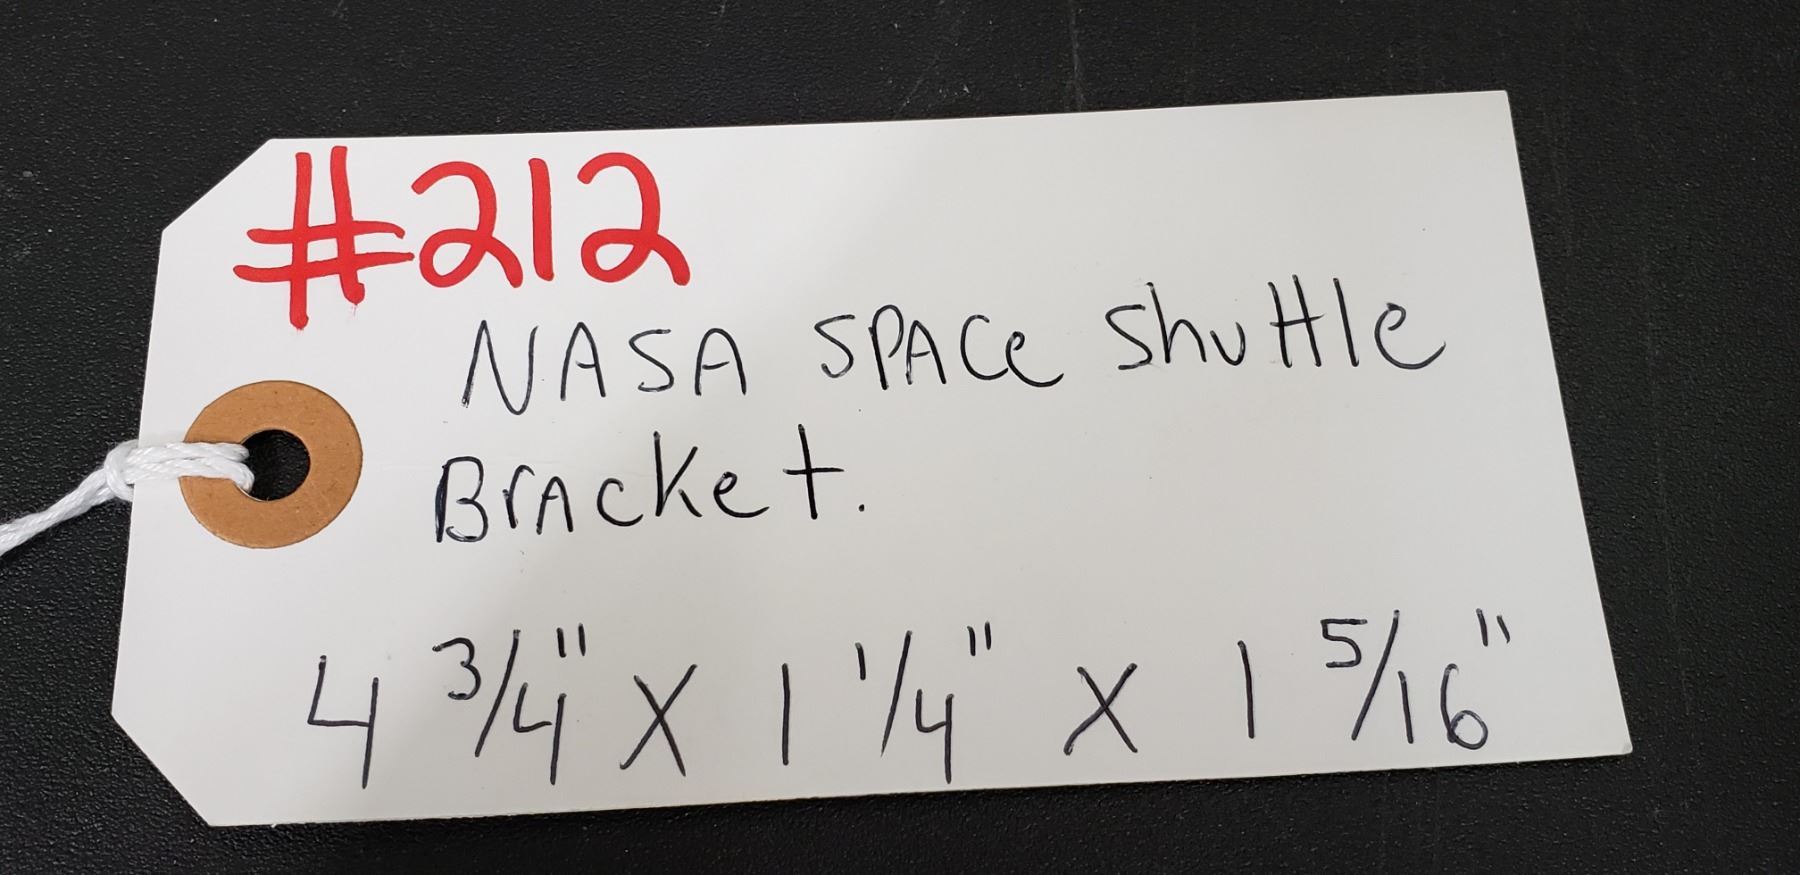 #212
NASA SPACe Shuttle
BrAcket.
4 3/4" X 1 1/4" X 1 5/16"